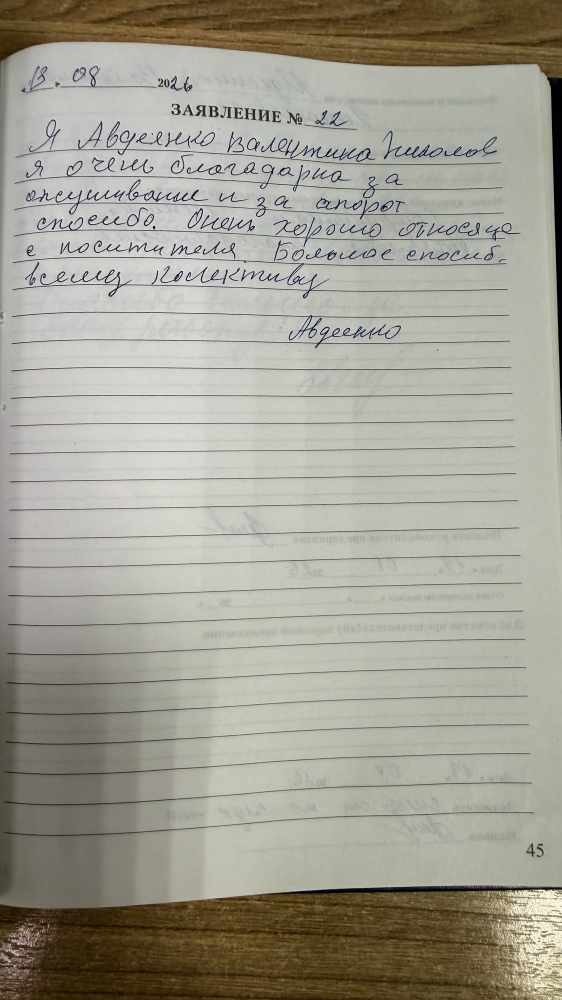 13. 08 2026
ЗАЯВЛЕНИЕ № 22
Я Авдеенко Валентина Николов
я очень благадарна за
апсушивание и за апорот
спосибо. Очень хорошо относяце
с поситителя. Большое спосиб.
всему колективу
Авдеенко
45